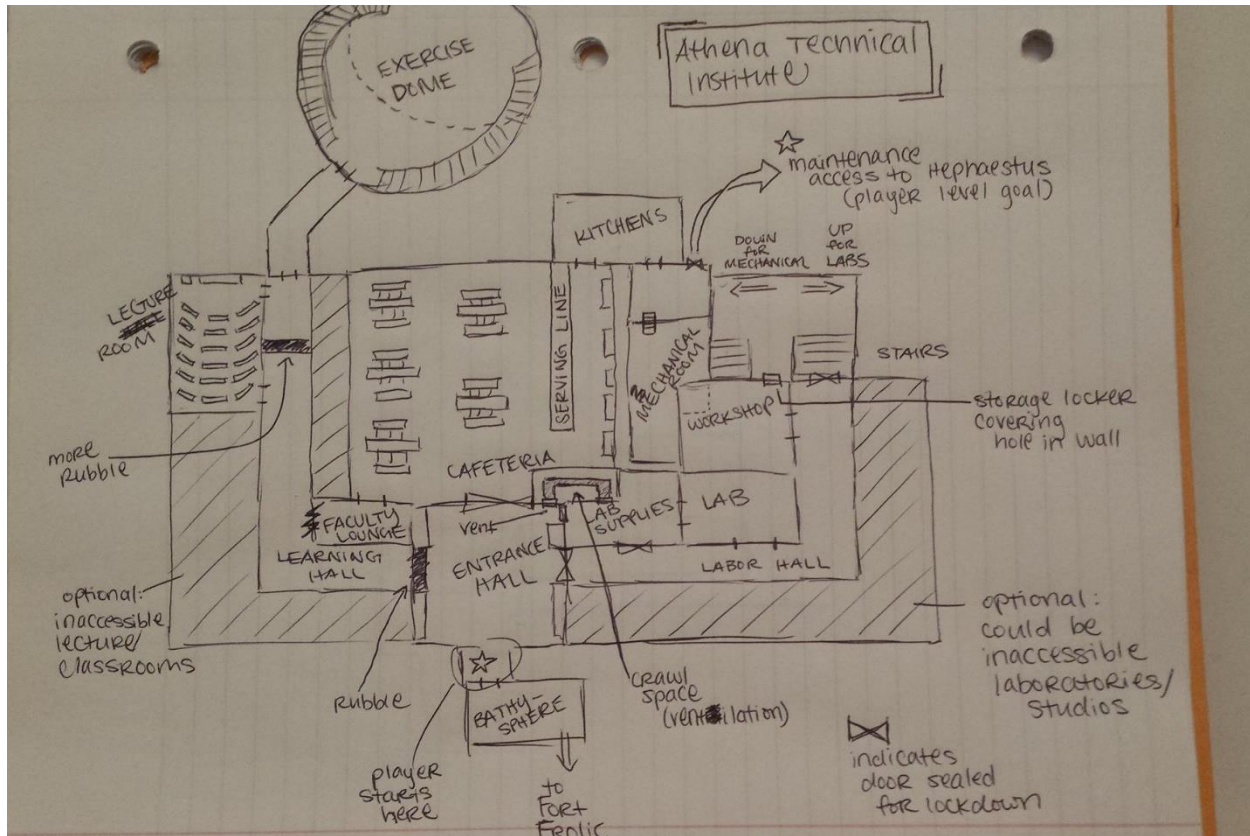 Athena Technical
Institute
EXERCISE
DOME
maintenance
access to Hephaestus
(player level goal)
KITCHENS
DOWN
for
MECHANICAL
UP
FOR
LABS
LECTURE
ROOM
SERVING LINE
MECHANICAL
ROOM
STAIRS
WORKSHOP
storage locker
covering
hole in wall
more
rubble
CAFETERIA
FACULTY
LOUNGE
vent
LAB
SUPPLIES
LAB
LEARNING
HALL
ENTRANCE
HALL
LABOR HALL
optional:
inaccessible
lecture/
classrooms
optional:
could be
inaccessible
laboratories/
studios
Rubble
BATHY-
SPHERE
crawl
space
(ventilation)
player
starts
here
to
Fort
Frolic
indicates
door sealed
for lockdown